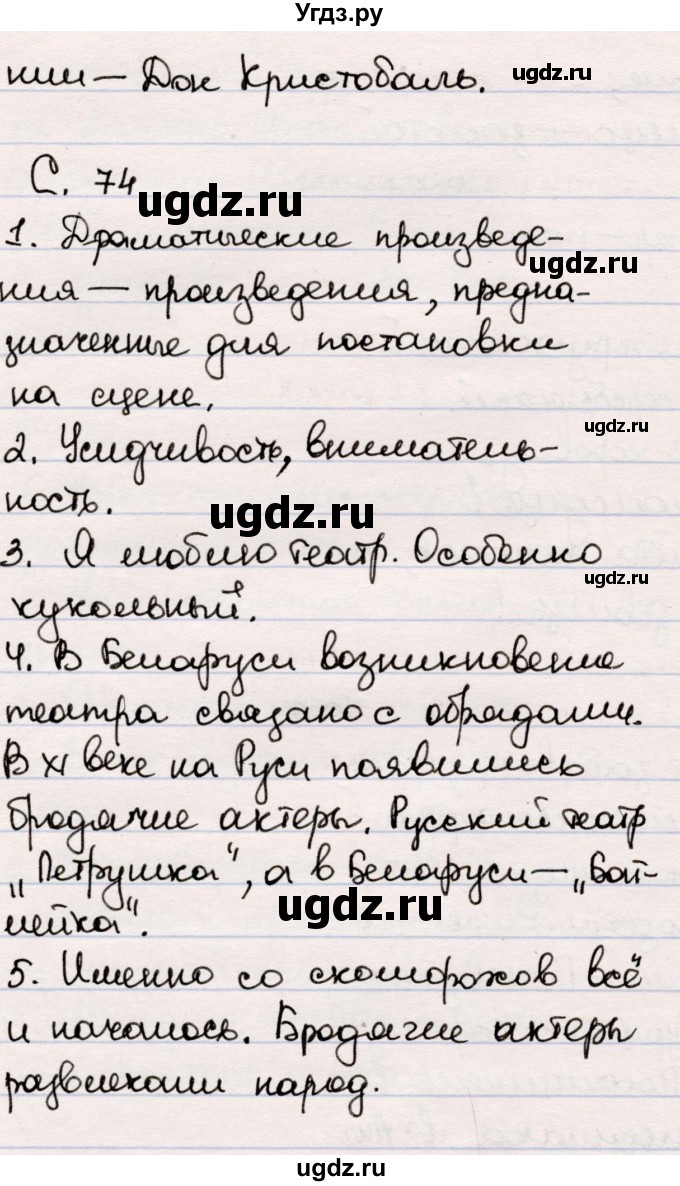 Угдз.ру
нии — Дон Кристобаль.
ugdz.ru
С. 74
ugdz.ru
1. Драматические произведе-
ugdz.ru
ния — произведения, предна-
значенные для постановки
на сцене.
ugdz.ru
2. Усидчивость, вниматель-
ность.
ugdz.ru
3. Я люблю театр. Особенно
ugdz.ru
кукольный.
4. В Беларуси возникновение
театра связано с обрядами.
В XI веке на Руси появились
бродячие актеры. Русский театр
„Петрушка", а в Беларуси — „Бат-
лейка".
ugdz.ru
5. Именно со скоморохов всё
и началось. Бродячие актеры
развлекали народ.
ugdz.ru